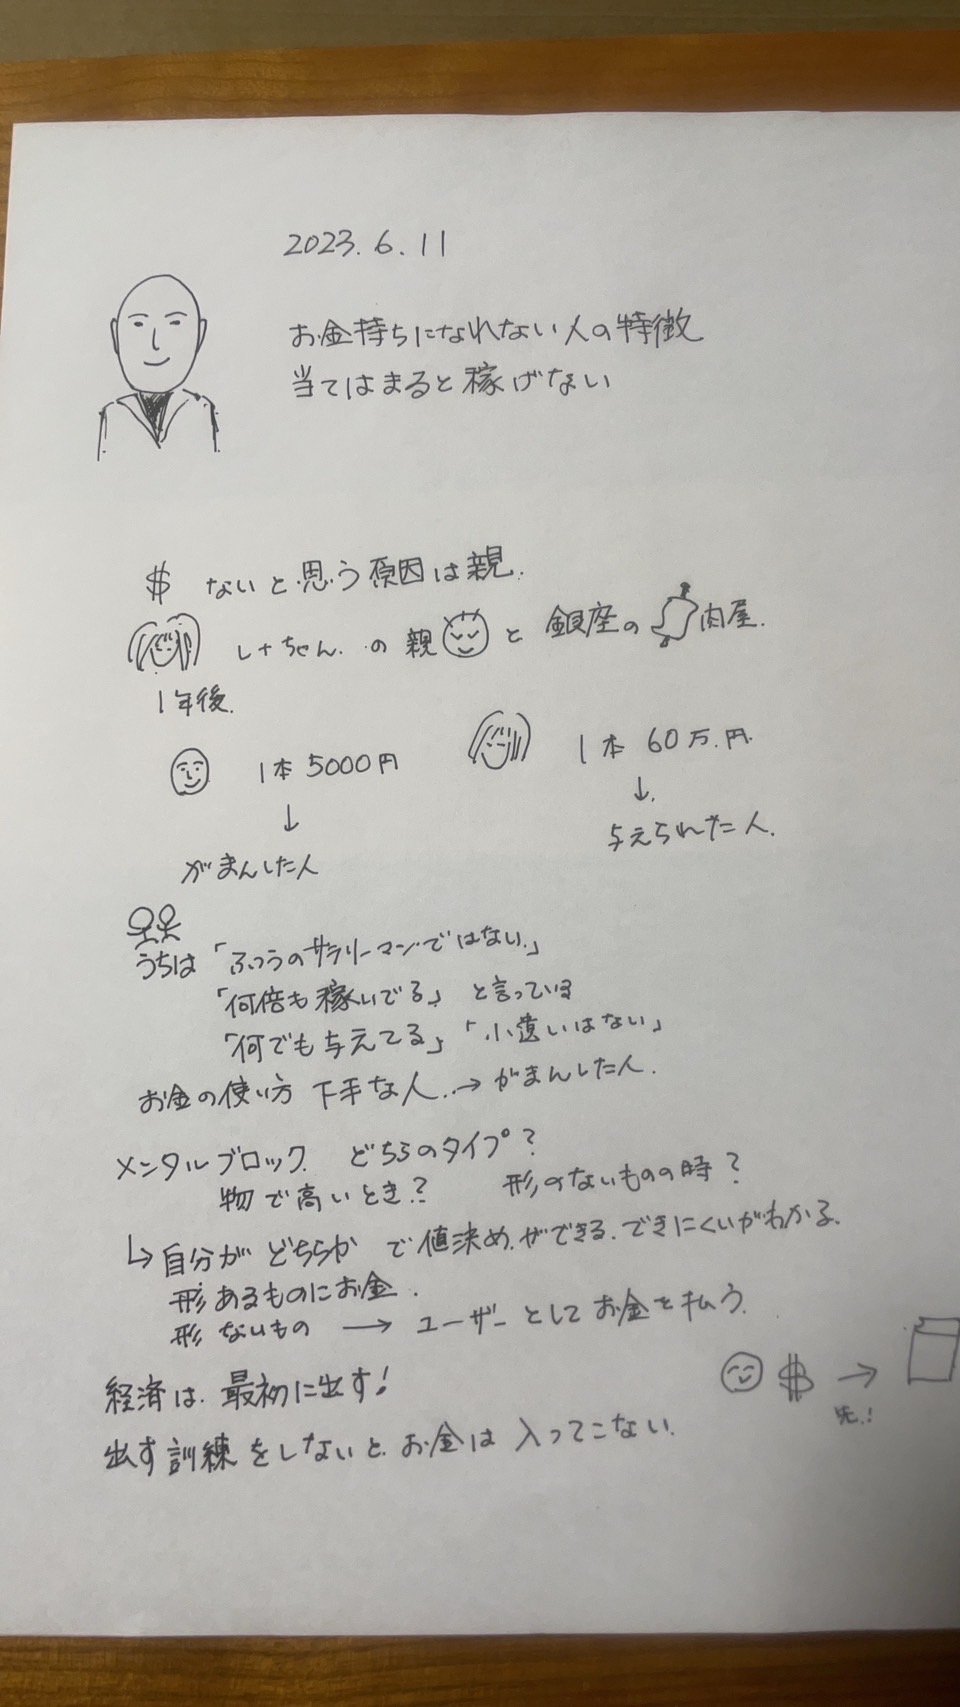 2023.6.11
お金持ちになれない人の特徴
当てはまると稼げない
$ ないと思う原因は親.
しナちゃん.の親 と 銀座の 肉屋.
1年後.
1本 5000円
1本 60万.円.
↓
↓.
がまんした人
与えられた人.
うちは「ふつうのサラリーマンではない.」
「何倍も稼いでる」と言っている
「何でも与えてる」「小遣いはない」
お金の使い方 下手な人..→がまんした人.
メンタルブロック. どちらのタイプ?
物で高いとき? 形のないものの時?
↳自分がどちらかで値決め.ができる.できにくいがわかる.
形あるものにお金.
形ないもの → ユーザーとしてお金を払う.
経済は.最初に出す!
$ →
先.!
出す訓練をしないと.お金は入ってこない.